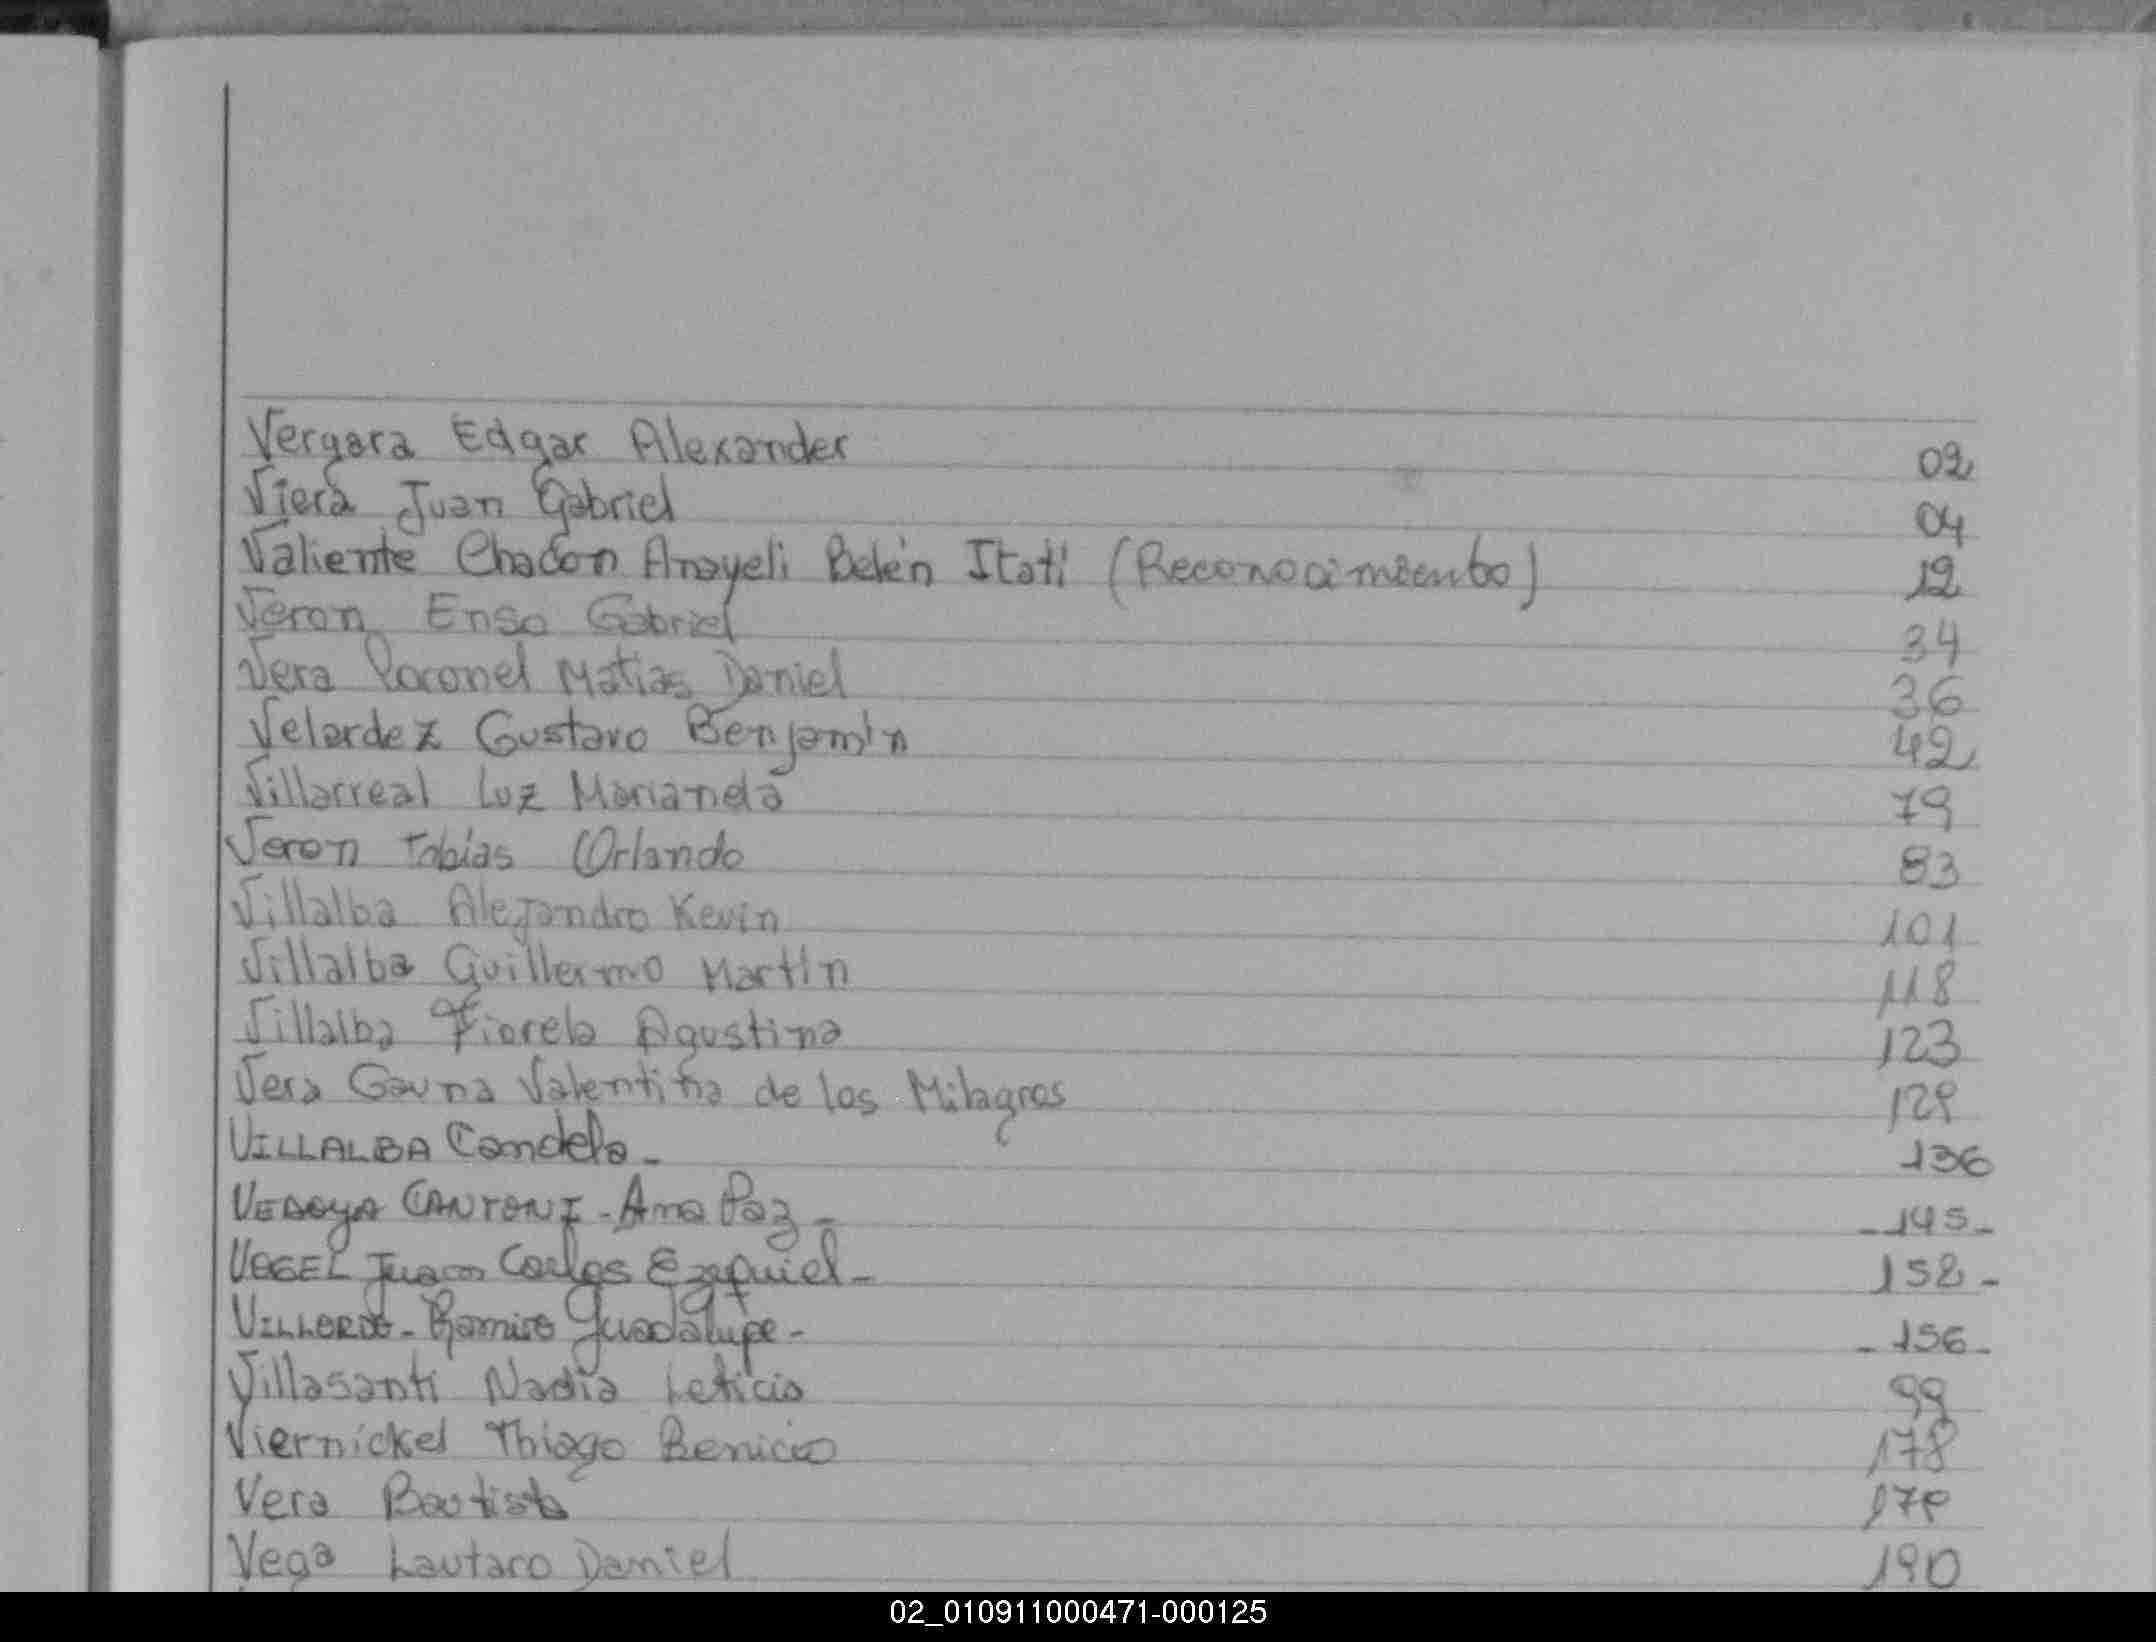 Vergara Edgar Alexander 02
Viera Juan Gabriel 04
Valiente Chacón Anayeli Belén Itatí (Reconocimiento) 12
Veron Enso Gabriel 34
Vera Coronel Matias Daniel 36
Velardez Gustavo Benjamín 42
Villarreal Luz Marianela 79
Veron Tobías Orlando 83
Villalba Alejandro Kevin 101
Villalba Guillermo Martín 118
Villalba Fiorela Agustina 123
Vera Gauna Valentina de los Milagros 129
VILLALBA Candela - 136
VEDOYA CANTONI - Ana Paz - - 145 -
VEGEL Juan Carlos Ezequiel - 152 -
- Ramiro Guadalupe - - 156 -
Villasanti Nadia Leticia 99
Viernickel Thiago Benicio 178
Vera Bautista 179
Vega Lautaro Daniel 190
02_010911000471-000125